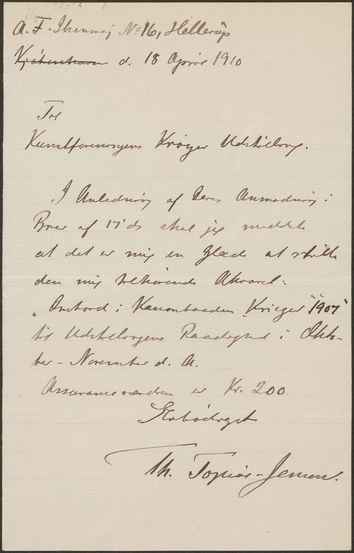 A. F. Ibsensvej No 16, Hellerup
Kjøbenhavn d. 18 April 1910
Til
Kunstforeningens Krøyer Udstilling.
I Anledning af Deres Anmodning i
Brev af 17 ds skal jeg meddele
at det er mig en Glæde at stille
den mig tilhørende Akvarel.
"Ombord i Kanonbaaden Krieger" "1907"
til Udstillingens Raadighed i Okto-
ber - November d. A.
Assuranceværdien er Kr. 200.
Ærbødigst
Th. Topsøe-Jensen.